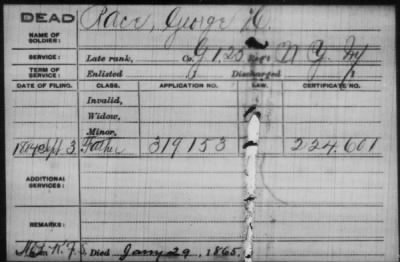 DEAD
Race, George H.
NAME OF
SOLDIER:
SERVICE:
Late rank, Co. G, 125 Reg't N. Y. Inf
TERM OF
SERVICE:
Enlisted 1 Discharged 1
DATE OF FILING. CLASS. APPLICATION NO. LAW. CERTIFICATE NO.
Invalid,
Widow,
Minor,
1884 Sept 3 Father 319153 224.601
ADDITIONAL
SERVICES:
REMARKS:
Died Jany 29, 1865,